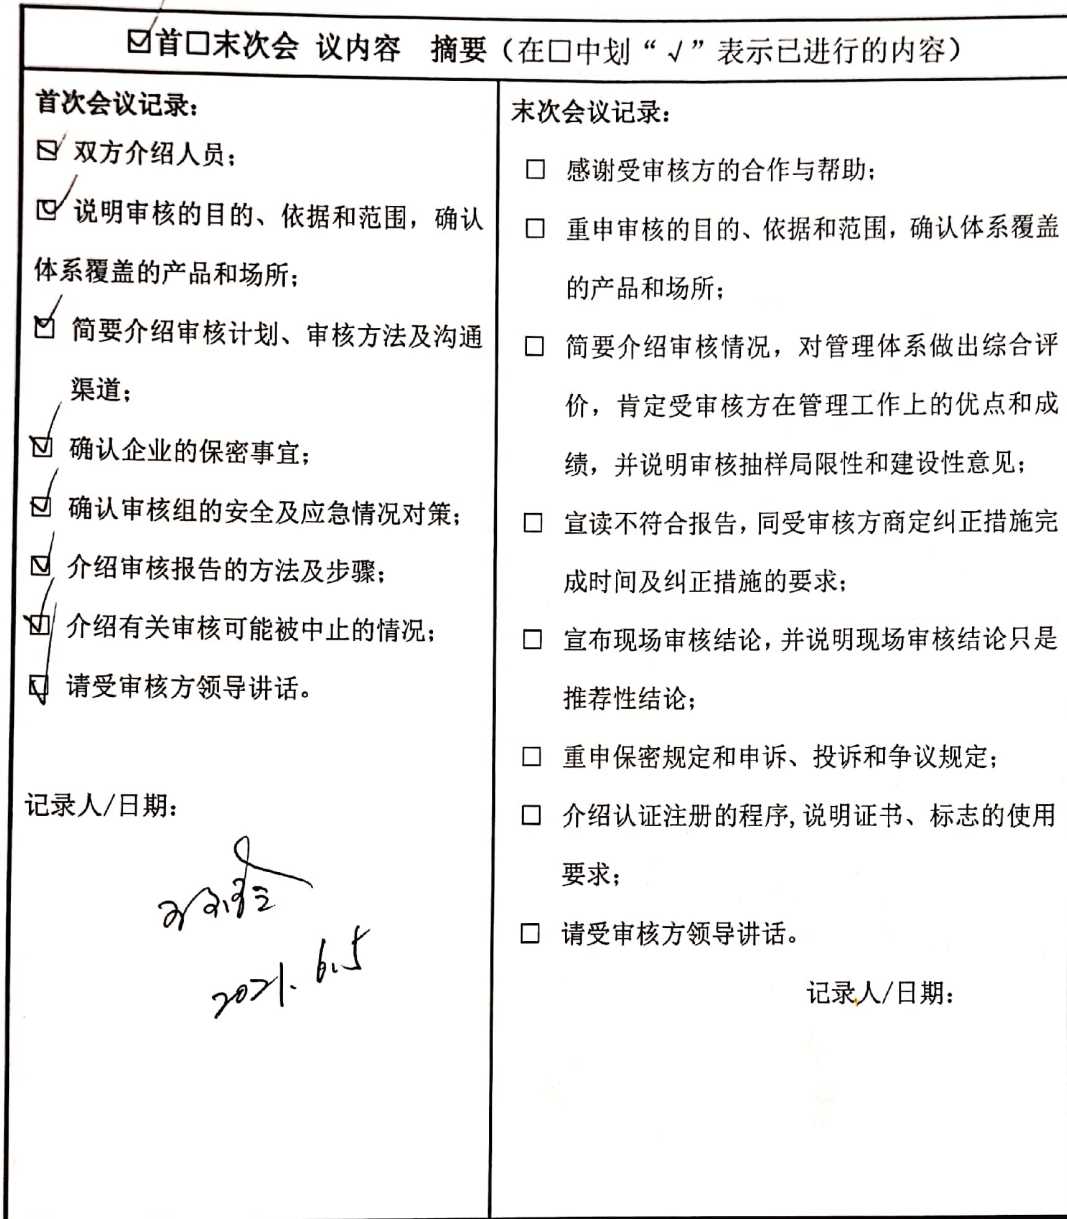 ☑首□末次会 议内容 摘要（在□中划“√”表示已进行的内容）
首次会议记录：
☑ 双方介绍人员；
☑ 说明审核的目的、依据和范围，确认
体系覆盖的产品和场所；
☑ 简要介绍审核计划、审核方法及沟通
渠道；
☑ 确认企业的保密事宜；
☑ 确认审核组的安全及应急情况对策；
☑ 介绍审核报告的方法及步骤；
☑ 介绍有关审核可能被中止的情况；
☑ 请受审核方领导讲话。
记录人/日期：
2021.6.5
末次会议记录：
□ 感谢受审核方的合作与帮助；
□ 重申审核的目的、依据和范围，确认体系覆盖
的产品和场所；
□ 简要介绍审核情况，对管理体系做出综合评
价，肯定受审核方在管理工作上的优点和成
绩，并说明审核抽样局限性和建设性意见；
□ 宣读不符合报告，同受审核方商定纠正措施完
成时间及纠正措施的要求；
□ 宣布现场审核结论，并说明现场审核结论只是
推荐性结论；
□ 重申保密规定和申诉、投诉和争议规定；
□ 介绍认证注册的程序，说明证书、标志的使用
要求；
□ 请受审核方领导讲话。
记录人/日期：